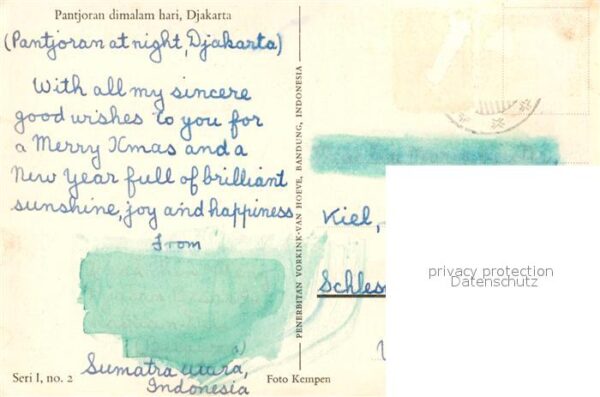 Pantjoran dimalam hari, Djakarta
(Pantjoran at night, Djakarta)
With all my sincere
good wishes to you for
a Merry Xmas and a
New Year full of brilliant
sunshine, joy and happiness
From
Sumatra Utara,
Indonesia
Seri I, no. 2
Foto Kempen
PENERBITAN VORKINK-VAN HOEVE, BANDUNG, INDONESIA
Kiel,
Schles
privacy protection
Datenschutz